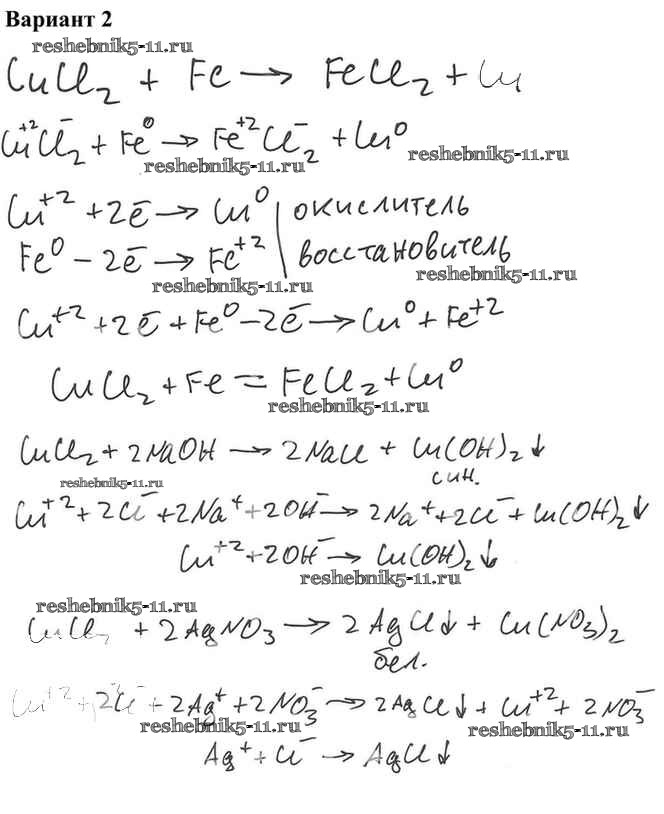 Вариант 2
reshebnik5-11.ru
CuCl₂ + Fe → FeCl₂ + Cu
Cu⁺²Cl⁻₂ + Fe⁰ → Fe⁺²Cl⁻₂ + Cu⁰
reshebnik5-11.ru
reshebnik5-11.ru
Cu⁺² + 2ē → Cu⁰ | окислитель
Fe⁰ − 2ē → Fe⁺² | восстановитель
reshebnik5-11.ru
reshebnik5-11.ru
Cu⁺² + 2ē + Fe⁰ − 2ē → Cu⁰ + Fe⁺²
CuCl₂ + Fe = FeCl₂ + Cu⁰
reshebnik5-11.ru
CuCl₂ + 2NaOH → 2NaCl + Cu(OH)₂↓
син.
reshebnik5-11.ru
Cu⁺² + 2Cl⁻ + 2Na⁺ + 2OH⁻ → 2Na⁺ + 2Cl⁻ + Cu(OH)₂↓
Cu⁺² + 2OH⁻ → Cu(OH)₂↓
reshebnik5-11.ru
reshebnik5-11.ru
CuCl₂ + 2AgNO₃ → 2AgCl↓ + Cu(NO₃)₂
бел.
Cu⁺² + 2Cl⁻ + 2Ag⁺ + 2NO₃⁻ → 2AgCl↓ + Cu⁺² + 2NO₃⁻
reshebnik5-11.ru
reshebnik5-11.ru
Ag⁺ + Cl⁻ → AgCl↓